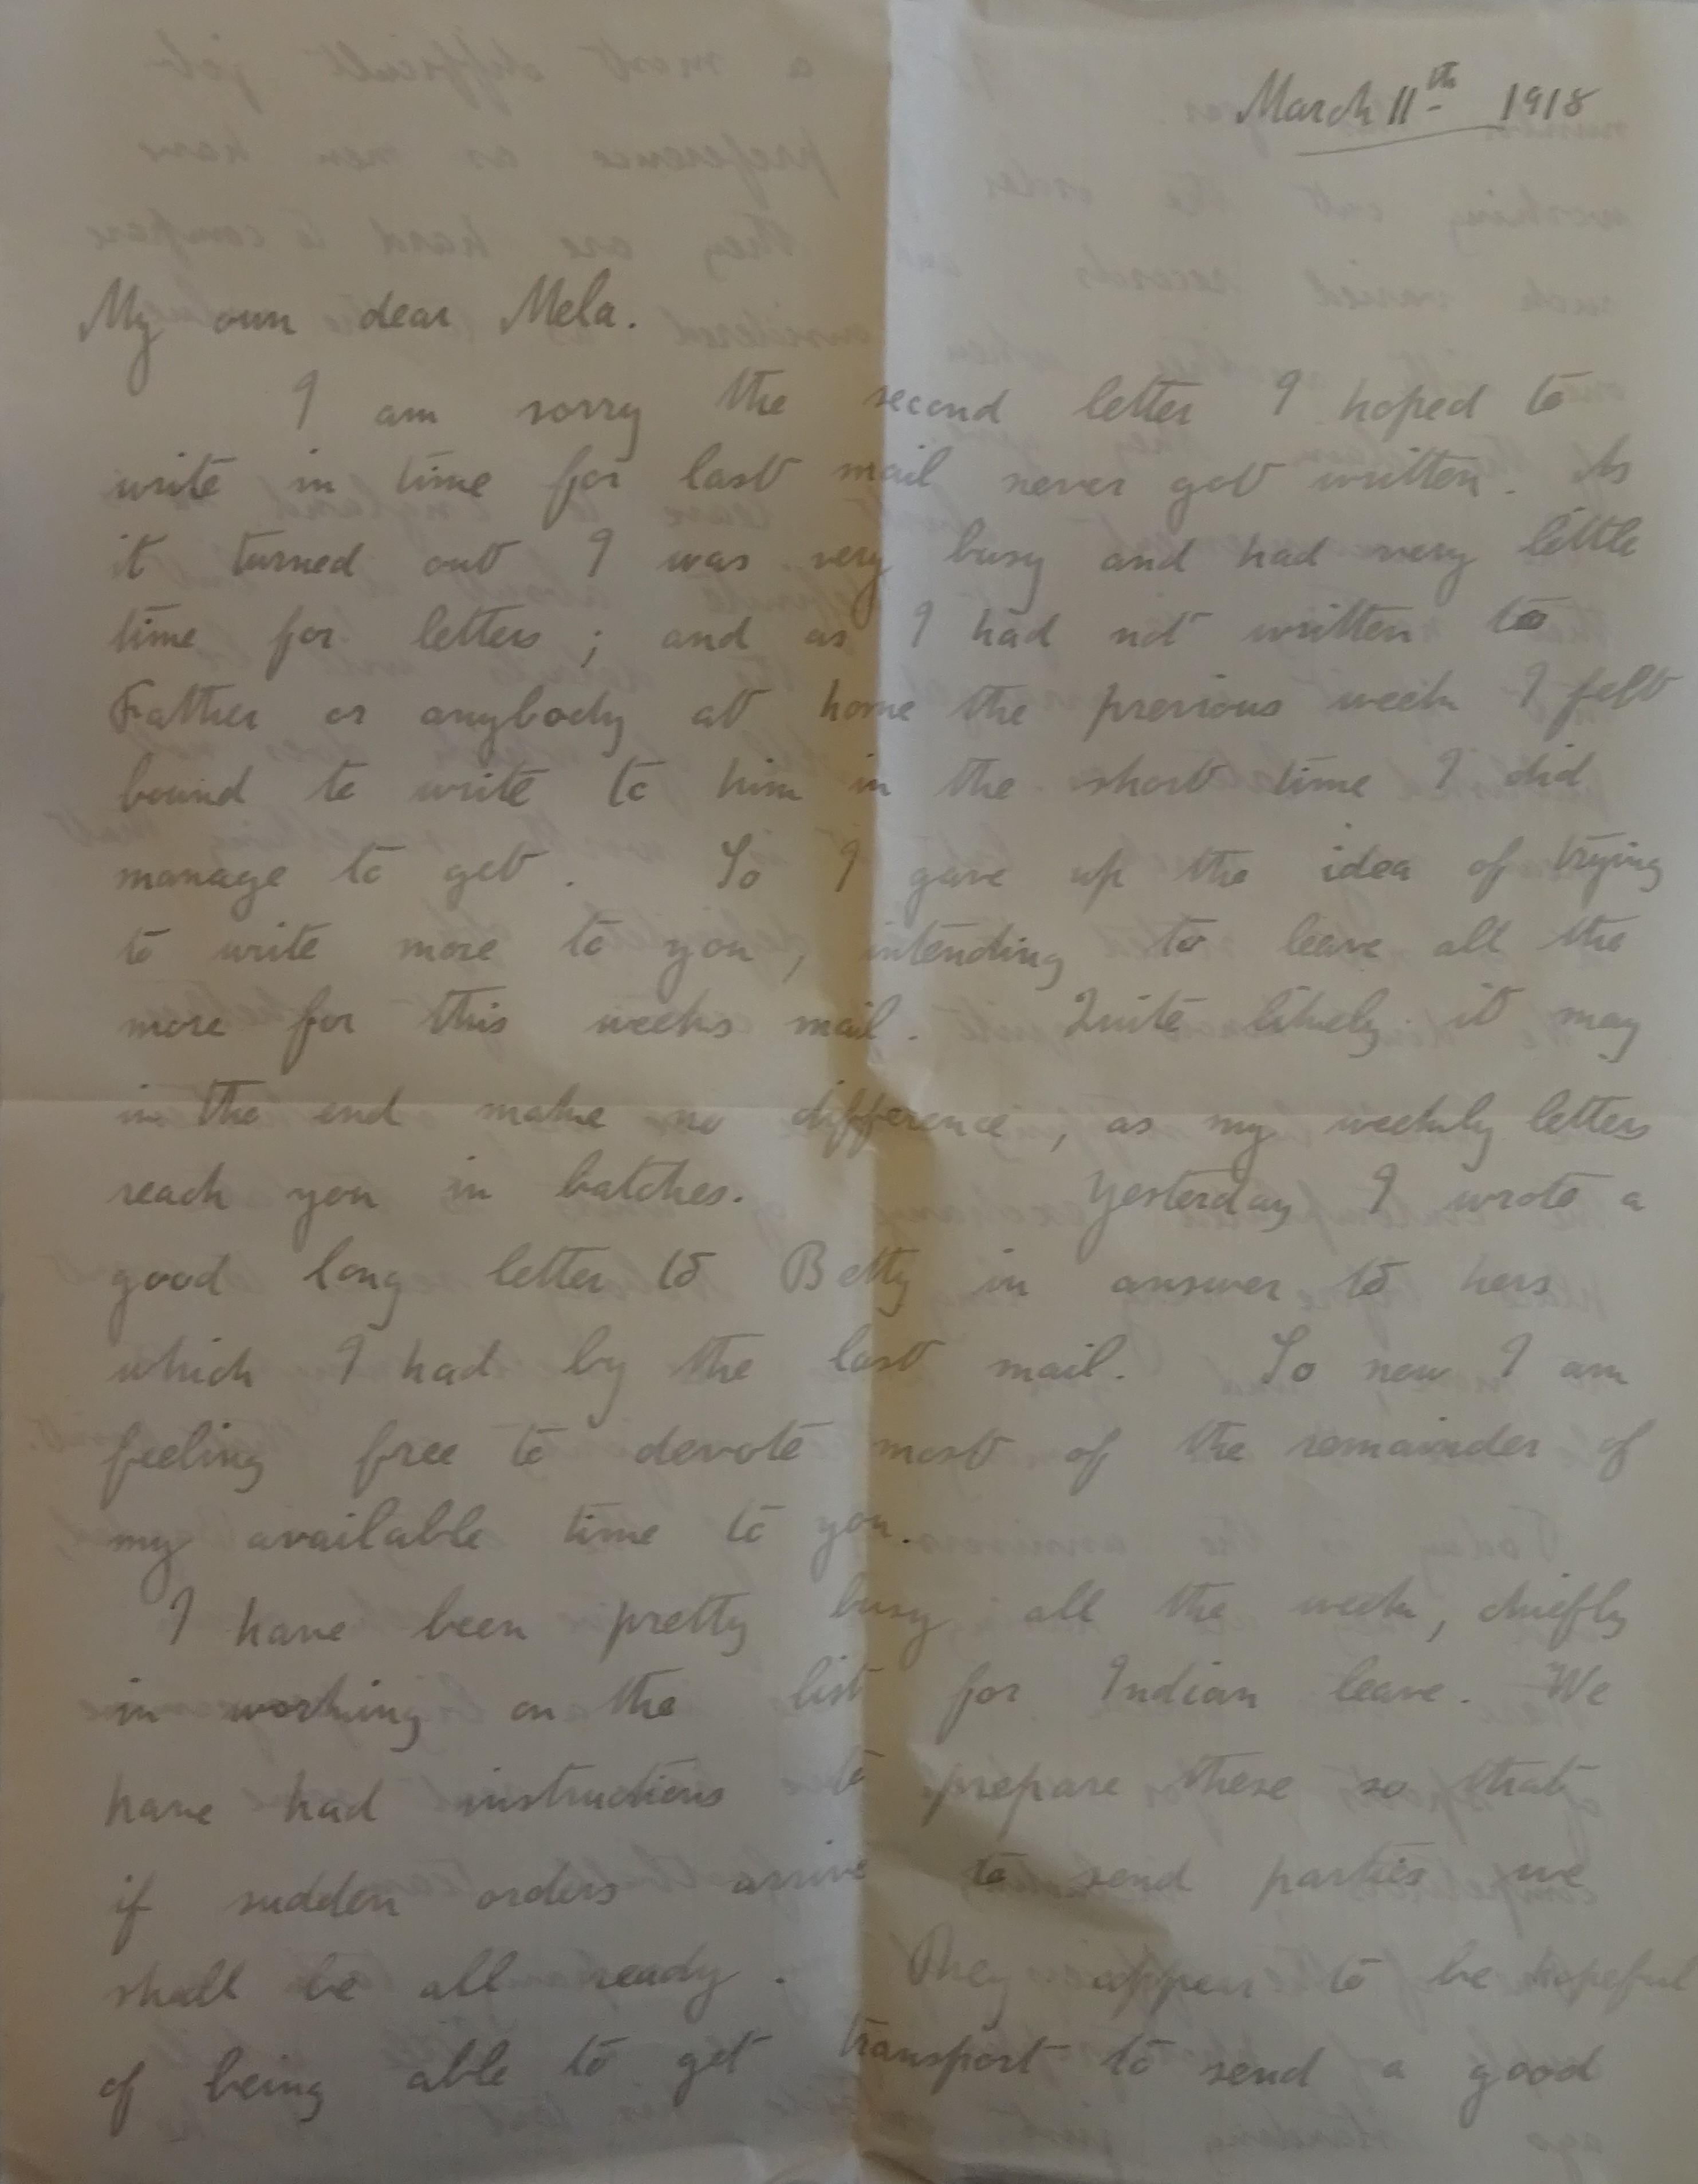 March 11th 1918
My own dear Mela.
I am sorry the second letter I hoped to
write in time for last mail never got written. As
it turned out I was very busy and had very little
time for letters ; and as I had not written to
Father or anybody at home the previous week I felt
bound to write to him in the short time I did
manage to get . So I gave up the idea of trying
to write more to you, intending to leave all the
more for this weeks mail. Quite likely it may
in the end make no difference, as my weekly letters
reach you in batches. Yesterday I wrote a
good long letter to Betty in answer to hers
which I had by the last mail. So now I am
feeling free to devote most of the remainder of
my available time to you.
I have been pretty busy all the week, chiefly
in working on the list for Indian leave. We
have had instructions to prepare these so that
if sudden orders arrive to send parties we
shall be all ready . They appear to be hopeful
of being able to get transport to send a good